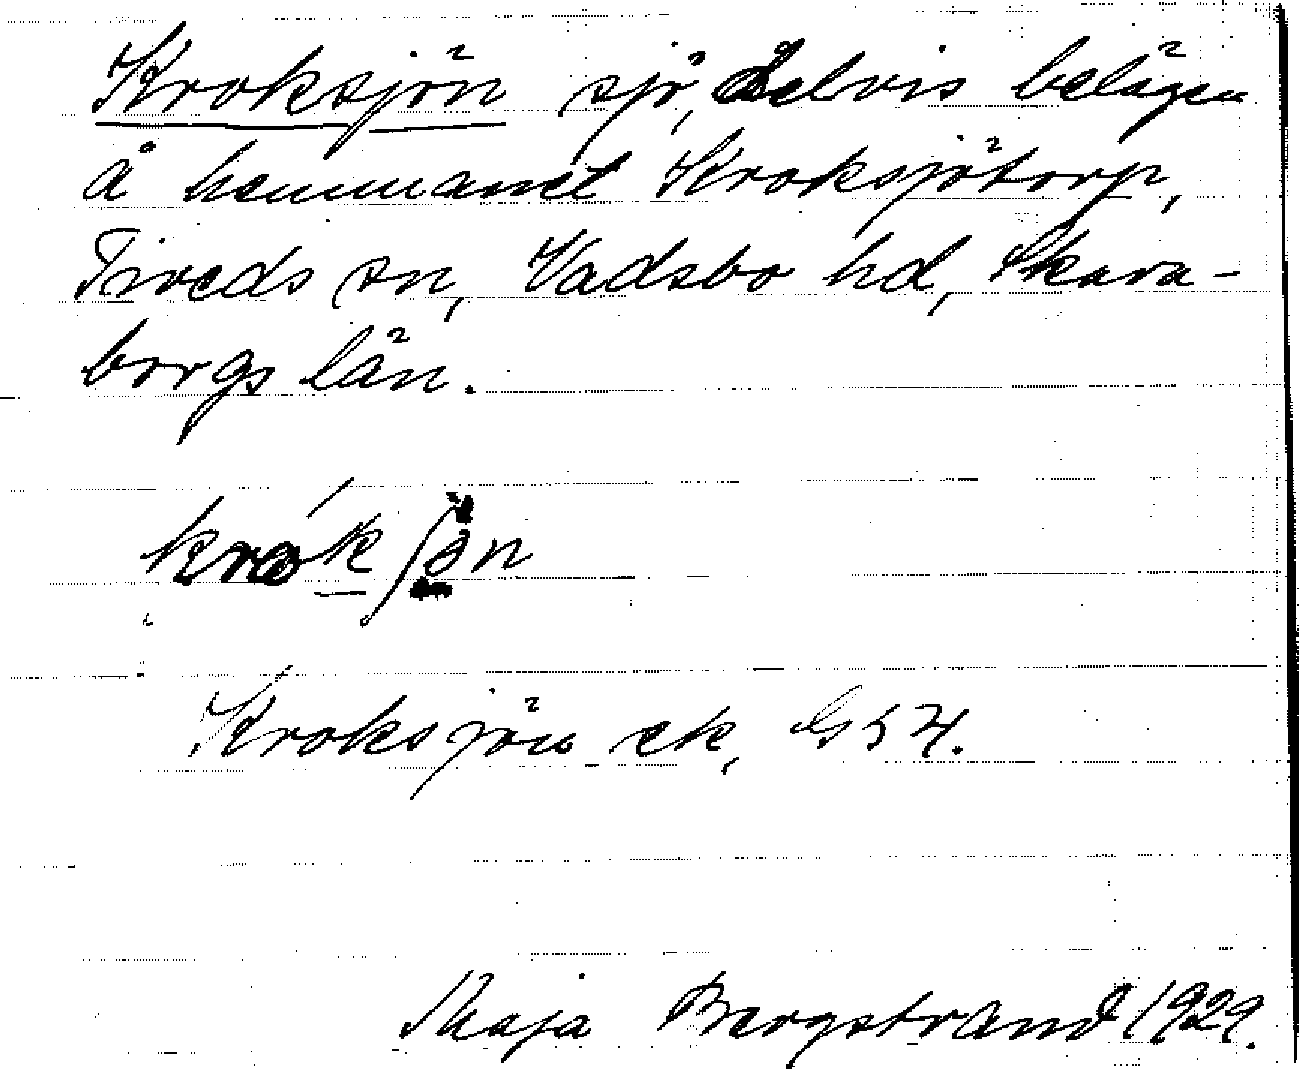 Kroksjön sjö, delvis belägen
å hemmanet Kroksjötorp,
Tiveds sn, Vadsbo hd, Skara-
borgs län.
Kroksjön ek, G 54.
Maja Bergstrand 1929.